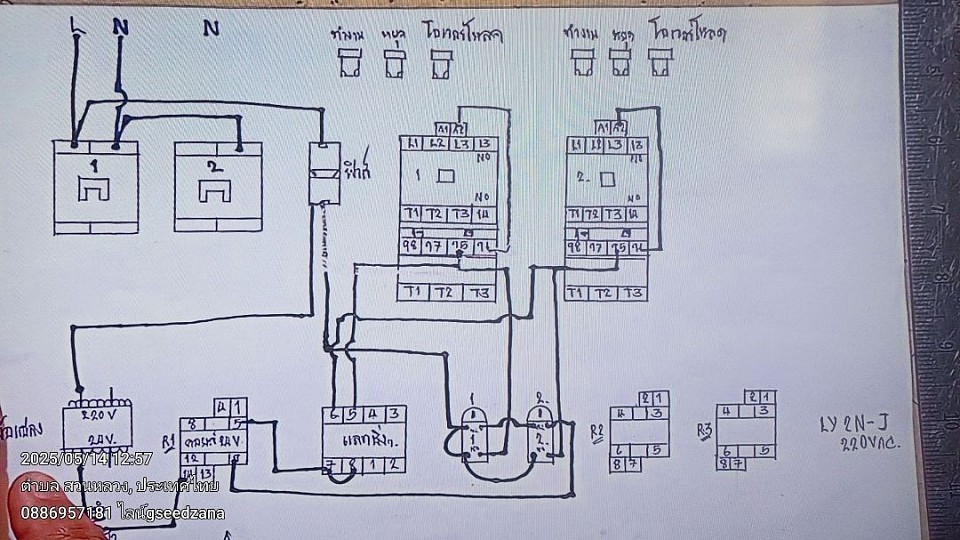 L N N
ทำงาน หยุด โอเวอร์โหลด
ทำงาน หยุด โอเวอร์โหลด
1
2
ฟิวส์
A1 A2
L1 L2 L3 13
NO
1
NO
T1 T2 T3 14
98 97 95 96
T1 T2 T3
A1 A2
L1 L2 L3 13
NO
2.
NO
T1 T2 T3 14
98 97 95 96
T1 T2 T3
220V
24V.
R1
4 1
8 5
24V.
12 9
14 13
6 5 4 3
7 8 1 2
1
1
2.
2.
R2
2 1
4 3
6 5
8 7
R3
2 1
4 3
6 5
8 7
LY 2N-J
220VAC.
2025/05/14 12:57
ตำบล สวนหลวง, ประเทศไทย
0886957181 ไลน์gseedzana